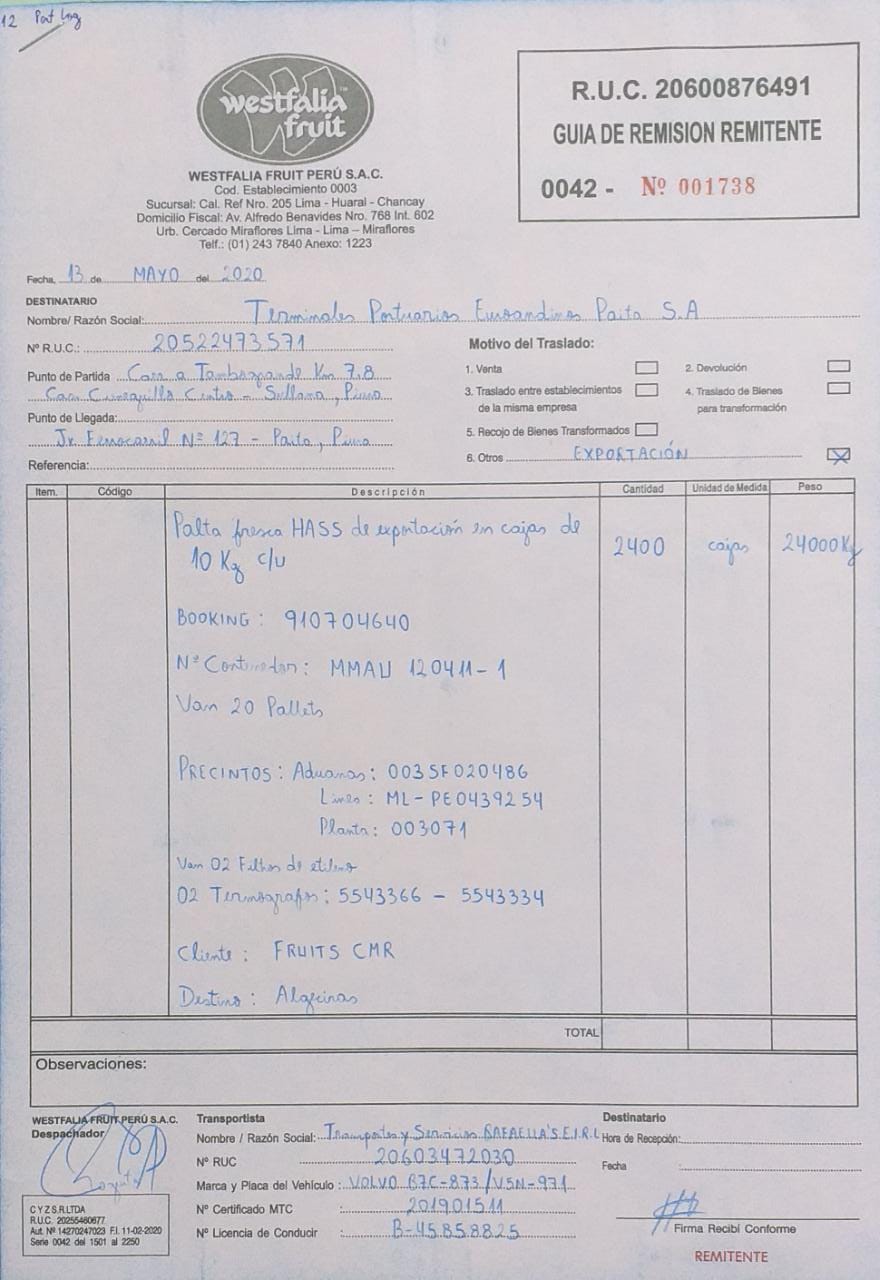 12 Pat Ing
westfalia™
fruit
WESTFALIA FRUIT PERÚ S.A.C.
Cod. Establecimiento 0003
Sucursal: Cal. Ref Nro. 205 Lima - Huaral - Chancay
Domicilio Fiscal: Av. Alfredo Benavides Nro. 768 Int. 602
Urb. Cercado Miraflores Lima - Lima – Miraflores
Telf.: (01) 243 7840 Anexo: 1223
R.U.C. 20600876491
GUIA DE REMISION REMITENTE
0042 - Nº 001738
Fecha, 13 de MAYO del 2020
DESTINATARIO
Nombre/ Razón Social: Terminales Portuarios Euroandinos Paita S.A
Nº R.U.C.: 20522473571
Punto de Partida Carr a Tambogrande Km 7.8
Cieneguillo Centro - Sullana, Piura
Punto de Llegada:
Jr. Ferrocarril Nº 127 - Paita, Piura
Referencia:
Motivo del Traslado:
1. Venta
2. Devolución
3. Traslado entre establecimientos
de la misma empresa
4. Traslado de Bienes
para transformación
5. Recojo de Bienes Transformados
6. Otros EXPORTACIÓN X
Item. Código Descripción Cantidad Unidad de Medida Peso
Palta fresca HASS de exportación en cajas de
10 Kg c/u 2400 cajas 24000Kg
BOOKING: 910704640
Nº Contenedor: MMAU 120411-1
Van 20 Pallets
PRECINTOS: Aduanas: 003SF020486
Linea: ML-PE0439254
Planta: 003071
Van 02 Filtros de etileno
02 Termografos: 5543366 - 5543334
Cliente: FRUITS CMR
Destino: Algeciras
TOTAL
Observaciones:
WESTFALIA FRUIT PERÚ S.A.C.
Despachador
C Y Z S.R.LTDA
R.U.C. 20255460677
Aut. Nº 14270247023 F.I. 11-02-2020
Serie 0042 del 1501 al 2250
Transportista
Nombre / Razón Social: Transportes y Servicios RAFAELLA'S E.I.R.L
Nº RUC : 20603472030
Marca y Placa del Vehículo : VOLVO B7C-873/V5N-971
Nº Certificado MTC : 201901511
Nº Licencia de Conducir : B-45858825
Destinatario
Hora de Recepción:
Fecha :
Firma Recibí Conforme
REMITENTE